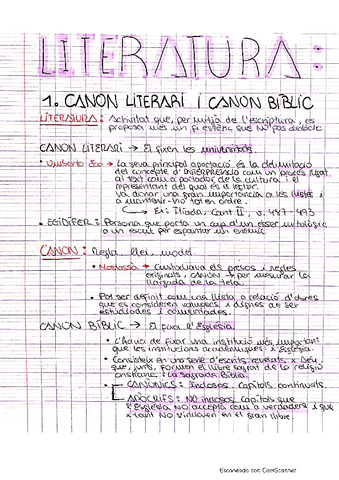 LITERATURA:
1. CANON LITERARI I CANON BÍBLIC
LITERATURA: Activitat que, per mitjà de l'escriptura, es
proposa més un fi estètic que no pas didàctic.
CANON LITERARI → El fixen les universitats.
• Umberto Eco → La seva principal aportació és la delimitació
del concepte d'INTERPRETACIÓ com un procés lligat
al text com a portador de la cultura i el
representant del qual és el lector.
Va donar una gran importància a les llistes i
a mantenir-ho tot en ordre.
Ex: Ilíada, Cant II, v. 487-493
• EGIDÍFER: Persona que porta un cap d'un ésser mitològic
a un escut per espantar a l'enemic
CANON: Regla, llei, model
• → Custodiava els pesos i regles
originals, CANON → per mesurar la
llargada de la tela.
• Pot ser definit com una llista o relació d'obres
que es consideren valuoses i dignes de ser
estudiades i comentades.
CANON BÍBLIC → El fixa l'Església.
• L'hauria de fixar una institució més important
que les institucions acadèmiques: l'Església.
• Consisteix en una sèrie d'escrits revelats x Déu
que, junts, formen el llibre sagrat de la religió
cristiana: La Sagrada Bíblia.
• CANÒNICS: Inclosos. capítols continuats.
APÒCRIFS: NO inclosos. capítols que
l'Església NO accepta com a verdaders i que
x tant NO s'inclouen en el gran llibre.
Escaneado con CamScanner